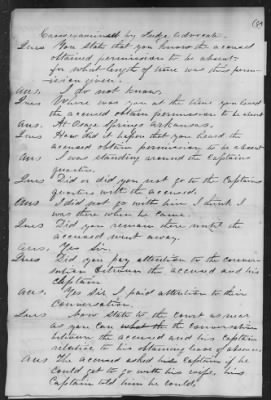 Cross examined by Judge Advocate.
Ques You state that you know the accused
obtained permission to be absent
for what length of time was this per-
mission given.
Ans. I do not know.
Ques Where was you at the time you heard
the accused obtain permission to be absent
Ans. At Osage Springs Arkansas.
Ques How did it happen that you heard the
accused obtain permission to be absent
Ans I was standing around the Captains
quarters.
Ques Did or did you not go to the Captains
quarters with the accused.
Ans I did not go with him I think I
was there when he came.
Ques Did you remain there until the
accused went away.
Ans. Yes Sir.
Ques Did you pay attention to the conver-
sation between the accused and his
Captain
Ans. Yes Sir I paid attention to their
conversation.
Ques Now state to the court as near
as you can what the conversation
between the accused and his Captain
relative to his obtaining leave of absence.
Ans The accused asked his Captain if he
could get to go with his wife, his
Captain told him he could.